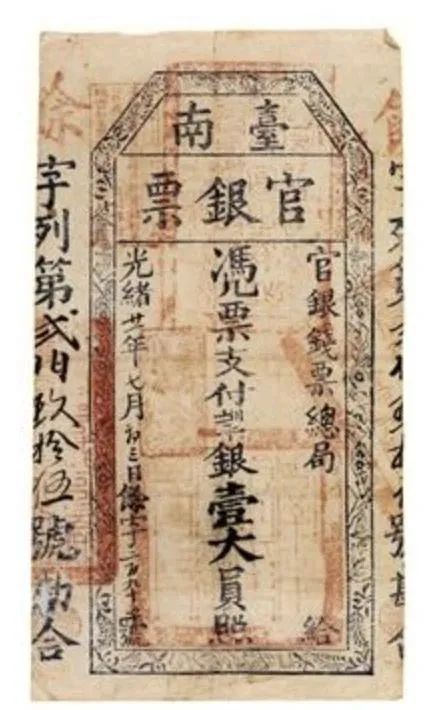 臺南
官銀票
官銀錢票總局 給
凴票支付銀壹大員照
光緒廿一年七月初三日字二百九十號
字列第貳佰玖拾伍號勘合